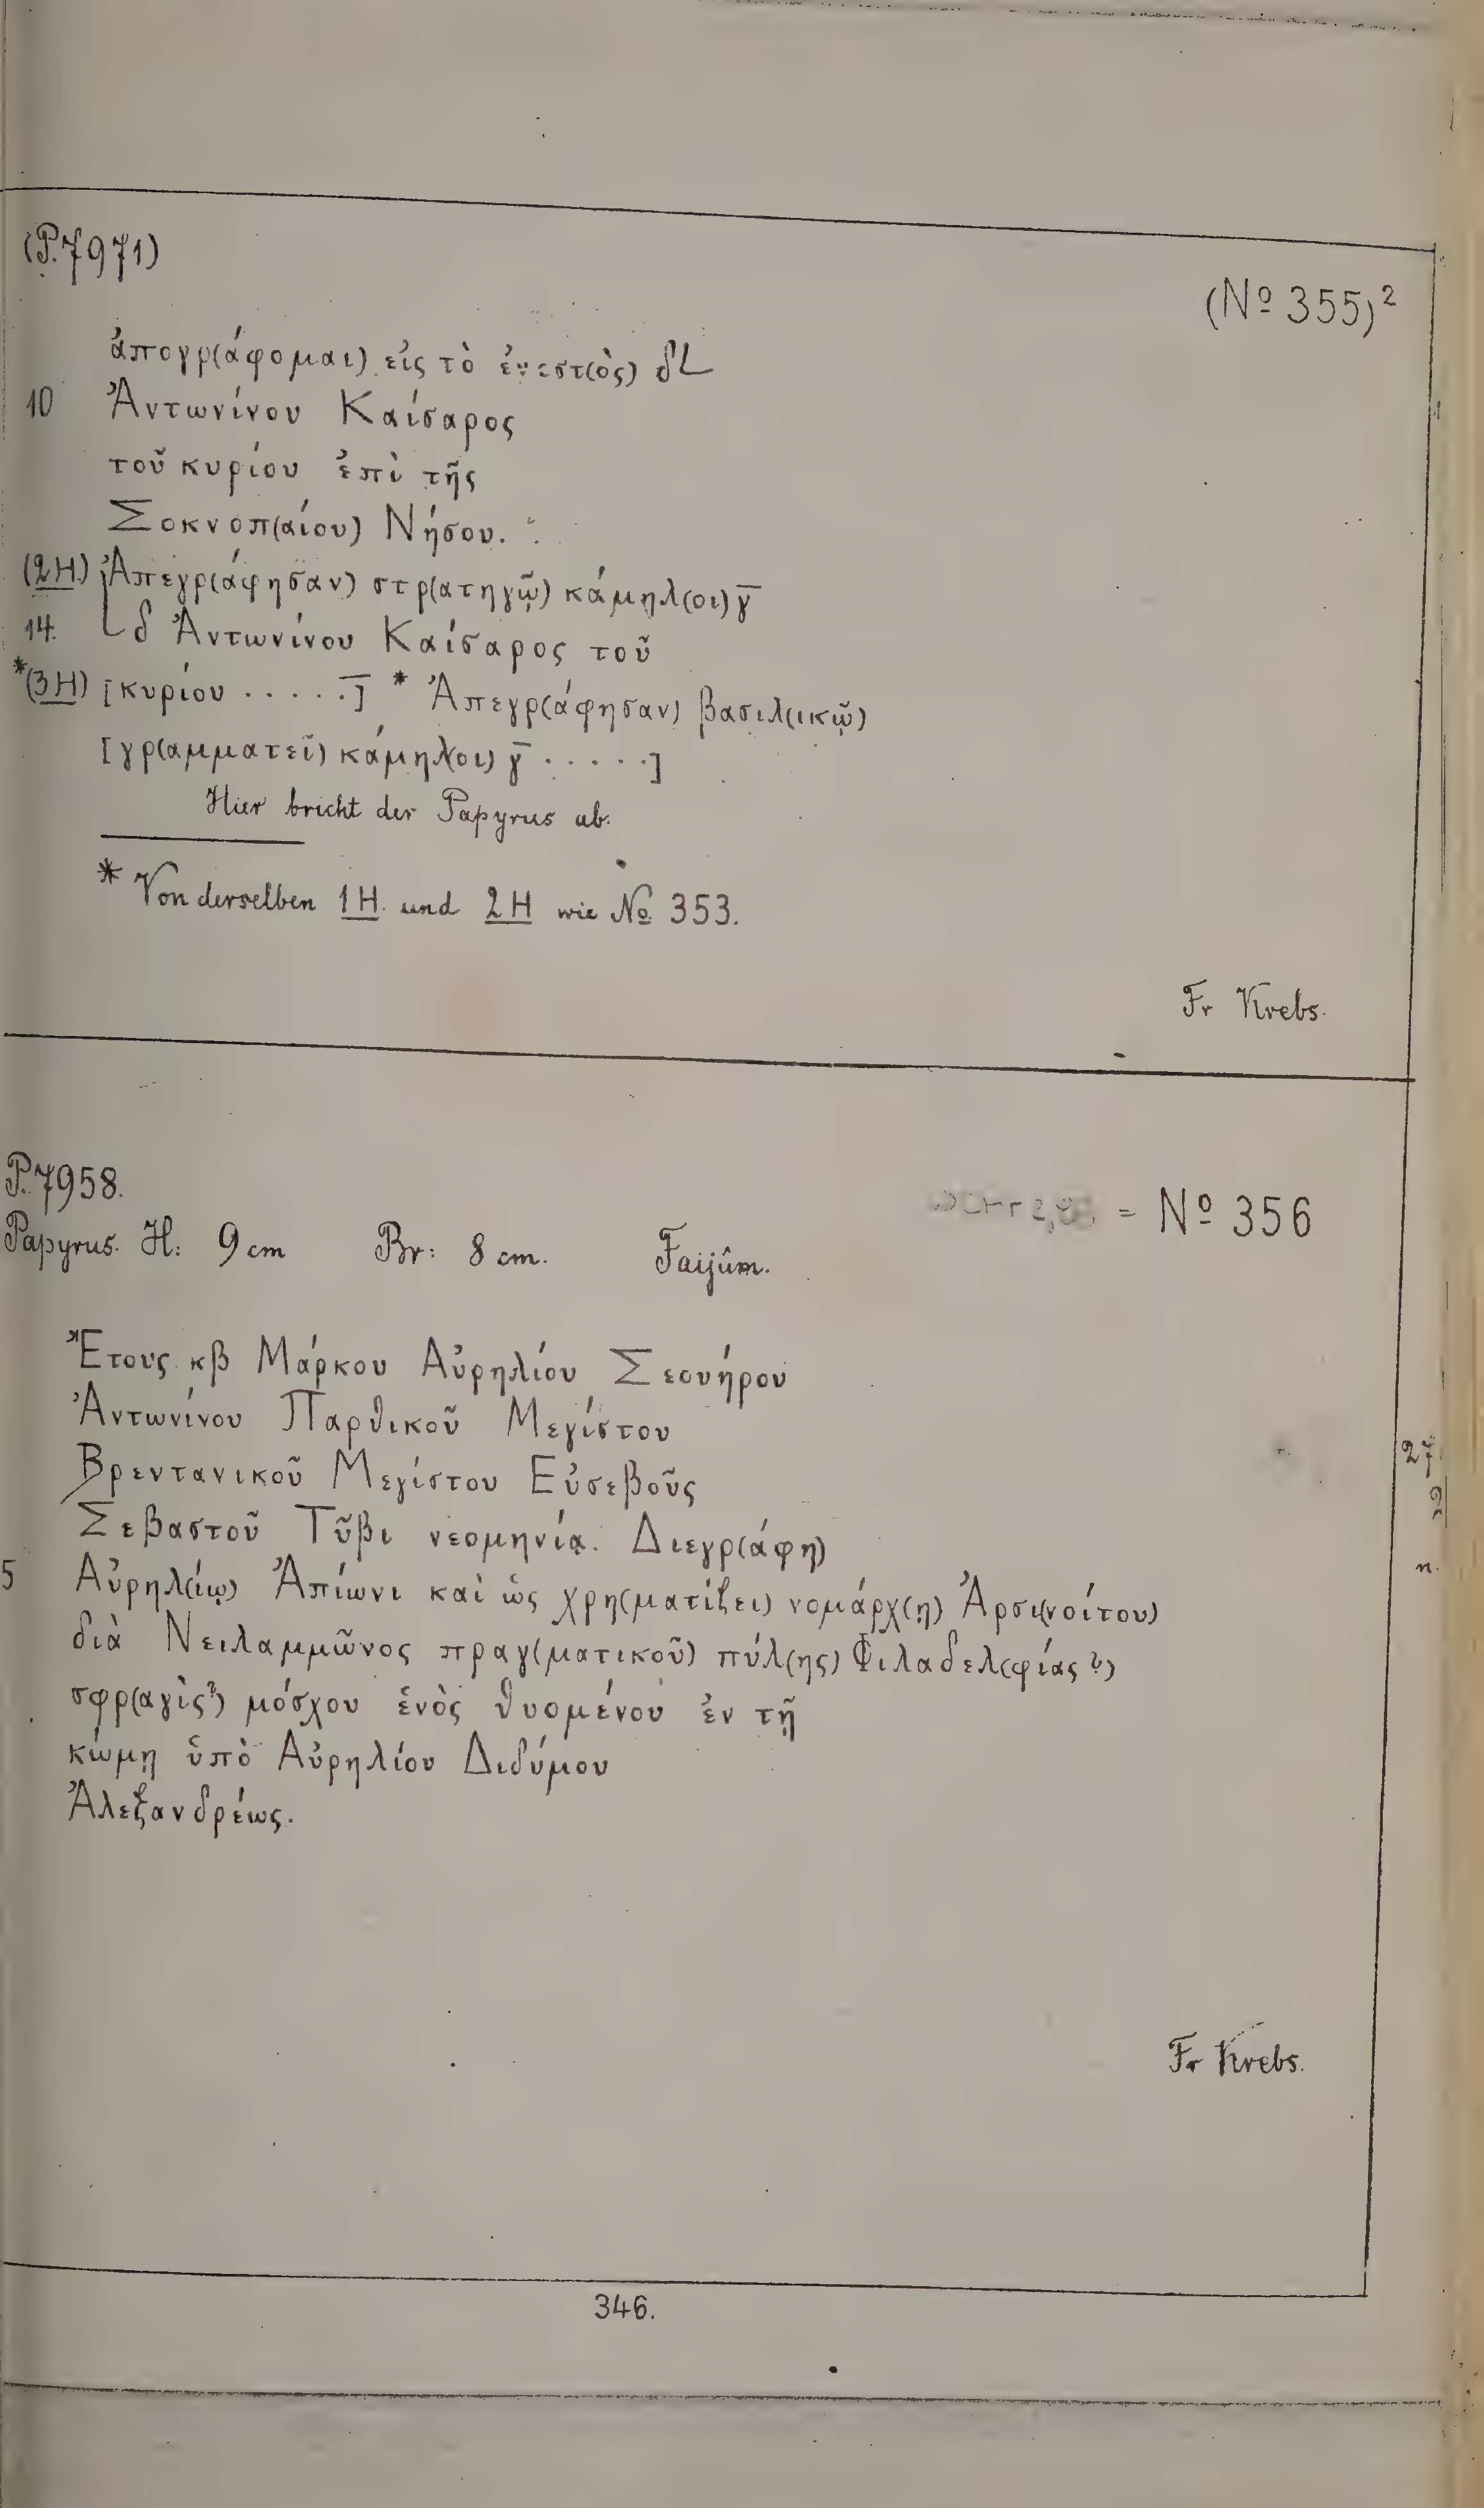 (P. 7971)
(Nº 355)²
ἀπογρ(άφομαι) εἰς τὸ ἐνεστ(ὸς) δL
10 Ἀντωνίνου Καίσαρος
τοῦ κυρίου ἐπὶ τῆς
Σοκνοπ(αίου) Νήσου.
(2H) Ἀπεγρ(άφησαν) στρ(ατηγῷ) κάμηλ(οι) γ̅
14. Lδ Ἀντωνίνου Καίσαρος τοῦ
*(3H) [κυρίου · · · · ·] * Ἀπεγρ(άφησαν) βασιλ(ικῷ)
[γρ(αμματεῖ) κάμηλ(οι) γ̅ · · · · ·]
Hier bricht der Papyrus ab.
* Von derselben 1H. und 2H wie Nº 353.
Fr Krebs.
P. 7958.
= Nº 356
Papyrus. H: 9 cm Br: 8 cm. Faijûm.
Ἔτους κβ Μάρκου Αὐρηλίου Σεουήρου
Ἀντωνίνου Παρθικοῦ Μεγίστου
Βρεντανικοῦ Μεγίστου Εὐσεβοῦς
Σεβαστοῦ Τῦβι νεομηνίᾳ. Διεγρ(άφη)
5 Αὐρηλ(ίῳ) Ἀπίωνι καὶ ὡς χρη(ματίζει) νομάρχ(ῃ) Ἀρσι(νοίτου)
διὰ Νειλαμμῶνος πραγ(ματικοῦ) πύλ(ης) Φιλαδελ(φίας?)
σφρ(αγὶς?) μόσχου ἑνὸς θυομένου ἐν τῇ
κώμῃ ὑπὸ Αὐρηλίου Διδύμου
Ἀλεξανδρέως.
Fr Krebs.
346.